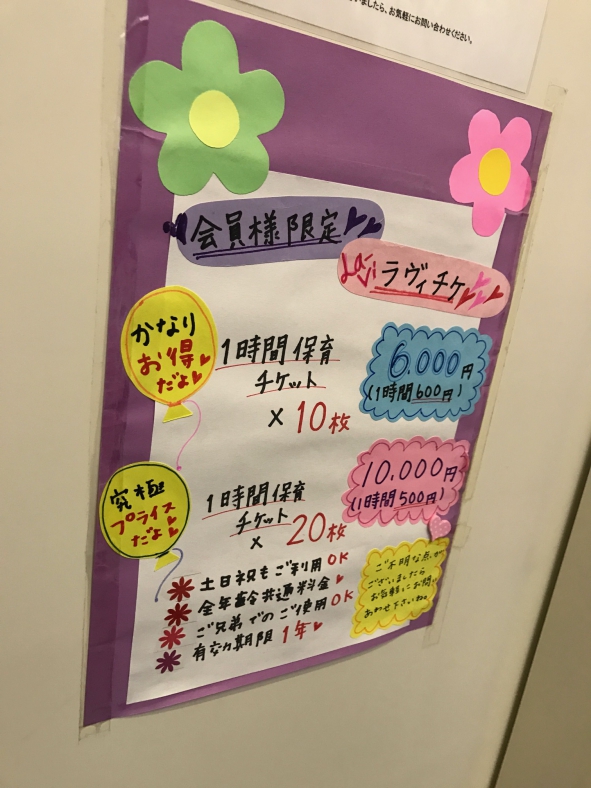 いましたら、お気軽にお問い合わせください。
会員様限定
Lavi ラヴィチケ
かなり
お得
だよ
1時間保育
チケット
×10枚
6.000円
(1時間600円)
究極
プライス
だよ
1時間保育
チケット
×20枚
10.000円
(1時間500円)
土日祝もご利用OK
全年齢共通料金
ご兄弟でのご使用OK
有効期限1年
ご不明な点が
ございましたら
お気軽にお問い
あわせ下さいね。